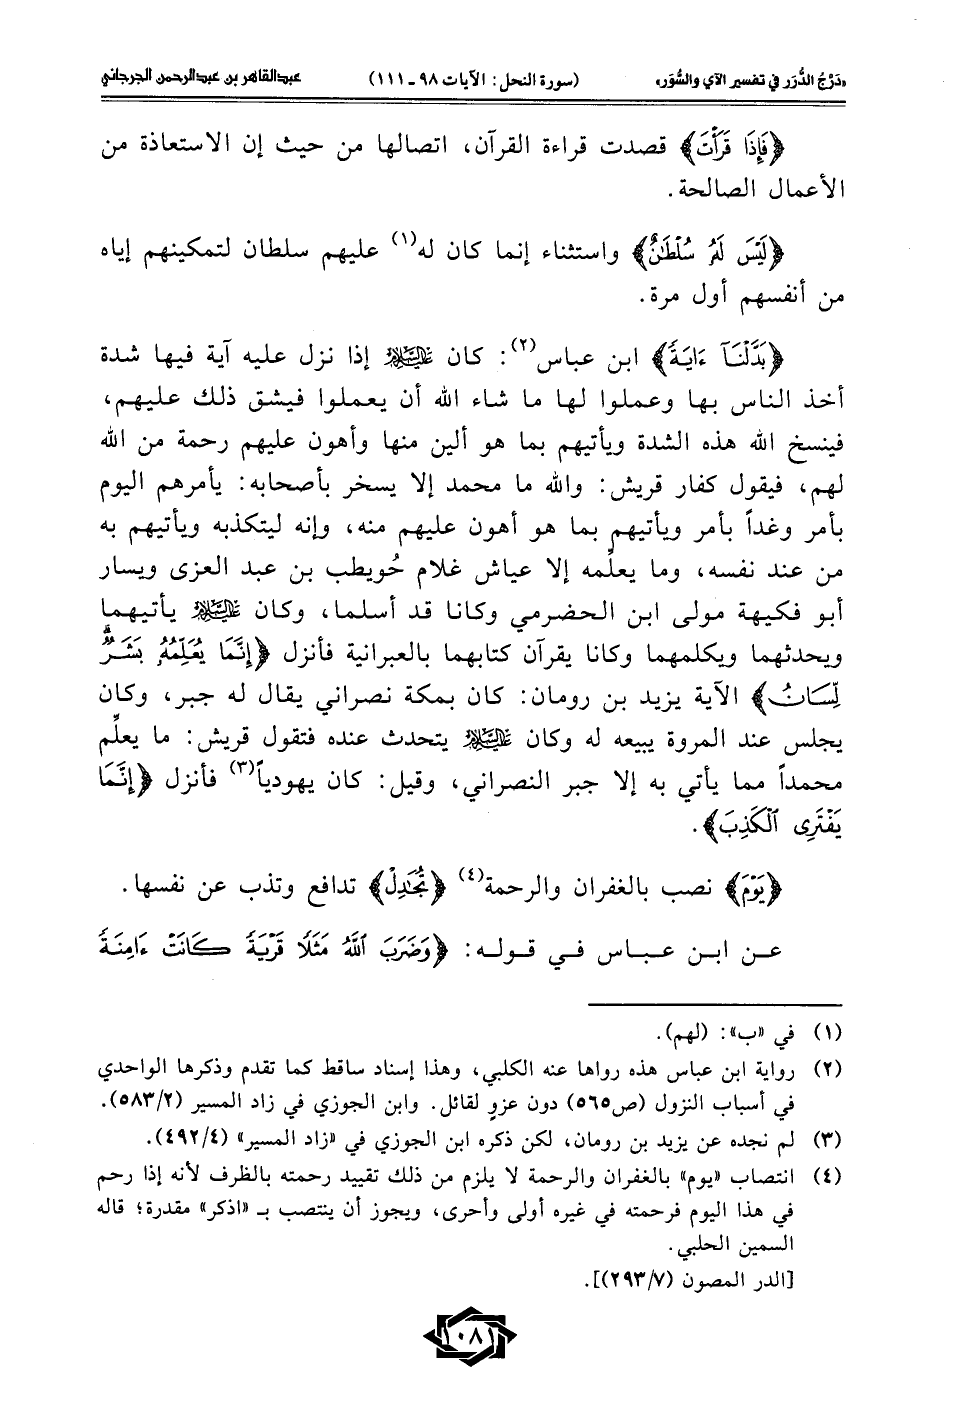 «دَرْجُ الدُّرَر في تفسير الآي والسُّوَر» (سورة النحل: الآيات ٩٨ ـ ١١١) عبدالقاهر بن عبدالرحمن الجرجاني
﴿فَإِذَا قَرَأْتَ﴾ قصدت قراءة القرآن، اتصالها من حيث إن الاستعاذة من
الأعمال الصالحة.
﴿لَيْسَ لَهُ سُلْطَانٌ﴾ واستثناء إنما كان له(١) عليهم سلطان لتمكينهم إياه
من أنفسهم أول مرة.
﴿بَدَّلْنَآ ءَايَةً﴾ ابن عباس(٢): كان عليه السلام إذا نزل عليه آية فيها شدة
أخذ الناس بها وعملوا لها ما شاء الله أن يعملوا فيشق ذلك عليهم،
فينسخ الله هذه الشدة ويأتيهم بما هو ألين منها وأهون عليهم رحمة من الله
لهم، فيقول كفار قريش: والله ما محمد إلا يسخر بأصحابه: يأمرهم اليوم
بأمر وغداً بأمر ويأتيهم بما هو أهون عليهم منه، وإنه ليتكذبه ويأتيهم به
من عند نفسه، وما يعلِّمه إلا عياش غلام حُويطب بن عبد العزى ويسار
أبو فكيهة مولى ابن الحضرمي وكانا قد أسلما، وكان عليه السلام يأتيهما
ويحدثهما ويكلمهما وكانا يقرآن كتابهما بالعبرانية فأنزل ﴿إِنَّمَا يُعَلِّمُهُۥ بَشَرٌ
لِّسَانُ﴾ الآية يزيد بن رومان: كان بمكة نصراني يقال له جبر، وكان
يجلس عند المروة يبيعه له وكان عليه السلام يتحدث عنده فتقول قريش: ما يعلِّم
محمداً مما يأتي به إلا جبر النصراني، وقيل: كان يهودياً(٣) فأنزل ﴿إِنَّمَا
يَفْتَرِى ٱلْكَذِبَ﴾.
﴿يَوْمَ﴾ نصب بالغفران والرحمة(٤) ﴿تُجَٰدِلُ﴾ تدافع وتذب عن نفسها.
عن ابن عباس في قوله: ﴿وَضَرَبَ ٱللَّهُ مَثَلًا قَرْيَةً كَانَتْ ءَامِنَةً
(١) في «ب»: (لهم).
(٢) رواية ابن عباس هذه رواها عنه الكلبي، وهذا إسناد ساقط كما تقدم وذكرها الواحدي
في أسباب النزول (ص٥٦٥) دون عزوٍ لقائل. وابن الجوزي في زاد المسير (٥٨٣/٢).
(٣) لم نجده عن يزيد بن رومان، لكن ذكره ابن الجوزي في «زاد المسير» (٤٩٢/٤).
(٤) انتصاب «يوم» بالغفران والرحمة لا يلزم من ذلك تقييد رحمته بالظرف لأنه إذا رحم
في هذا اليوم فرحمته في غيره أولى وأحرى، ويجوز أن ينتصب بـ «اذكر» مقدرة؛ قاله
السمين الحلبي.
[الدر المصون (٢٩٣/٧)].
١٠٨١